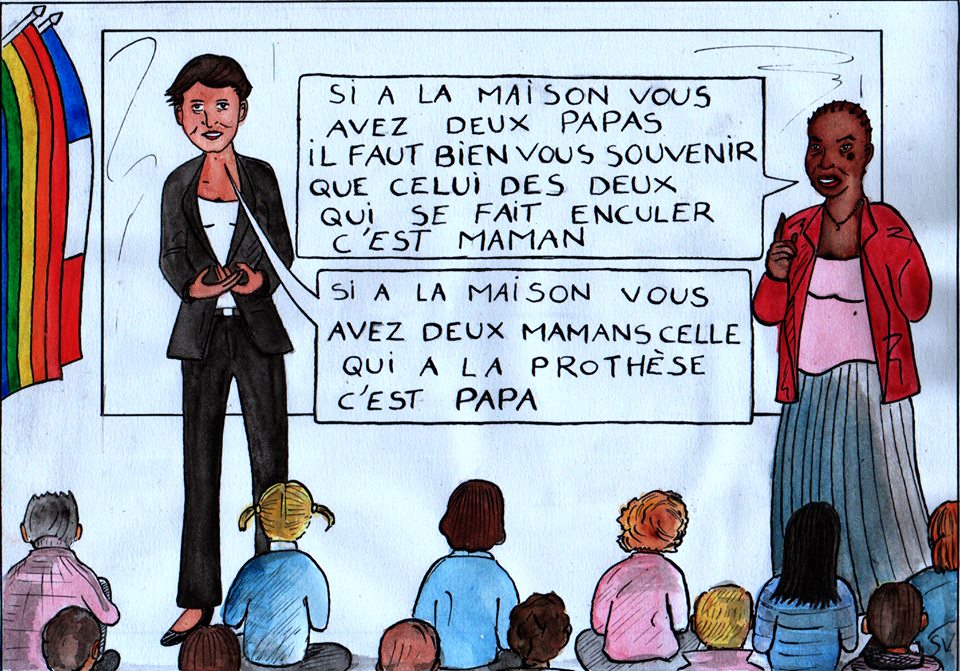 SI A LA MAISON VOUS
AVEZ DEUX PAPAS
iL FAUT BIEN VOUS SOUVENIR
QUE CELUI DES DEUX
QUI SE FAIT ENCULER
C'EST MAMAN
SI A LA MAISON VOUS
AVEZ DEUX MAMANS CELLE
QUI A LA PROTHÈSE
C'EST PAPA
SV